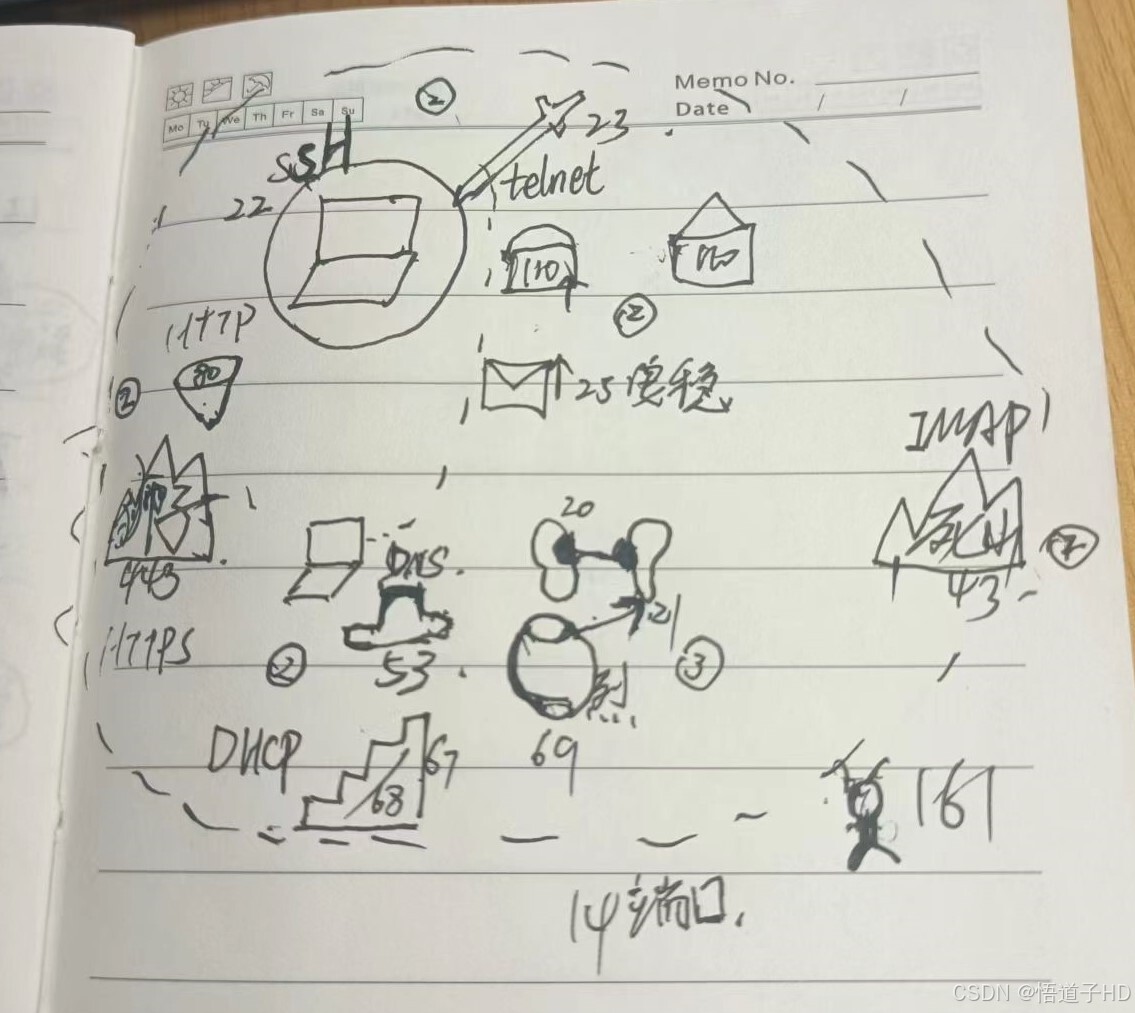 Memo No.
Date / /
Mo Tu We Th Fr Sa Su
②
23
SSH
telnet
22
110
②
HTTP
80
②
25
IMAP
443
20
DNS.
死
②
43
21
HTTPS
②
53
③
烈
69
DHCP
67
68
161
14端口.
CSDN @悟道子HD